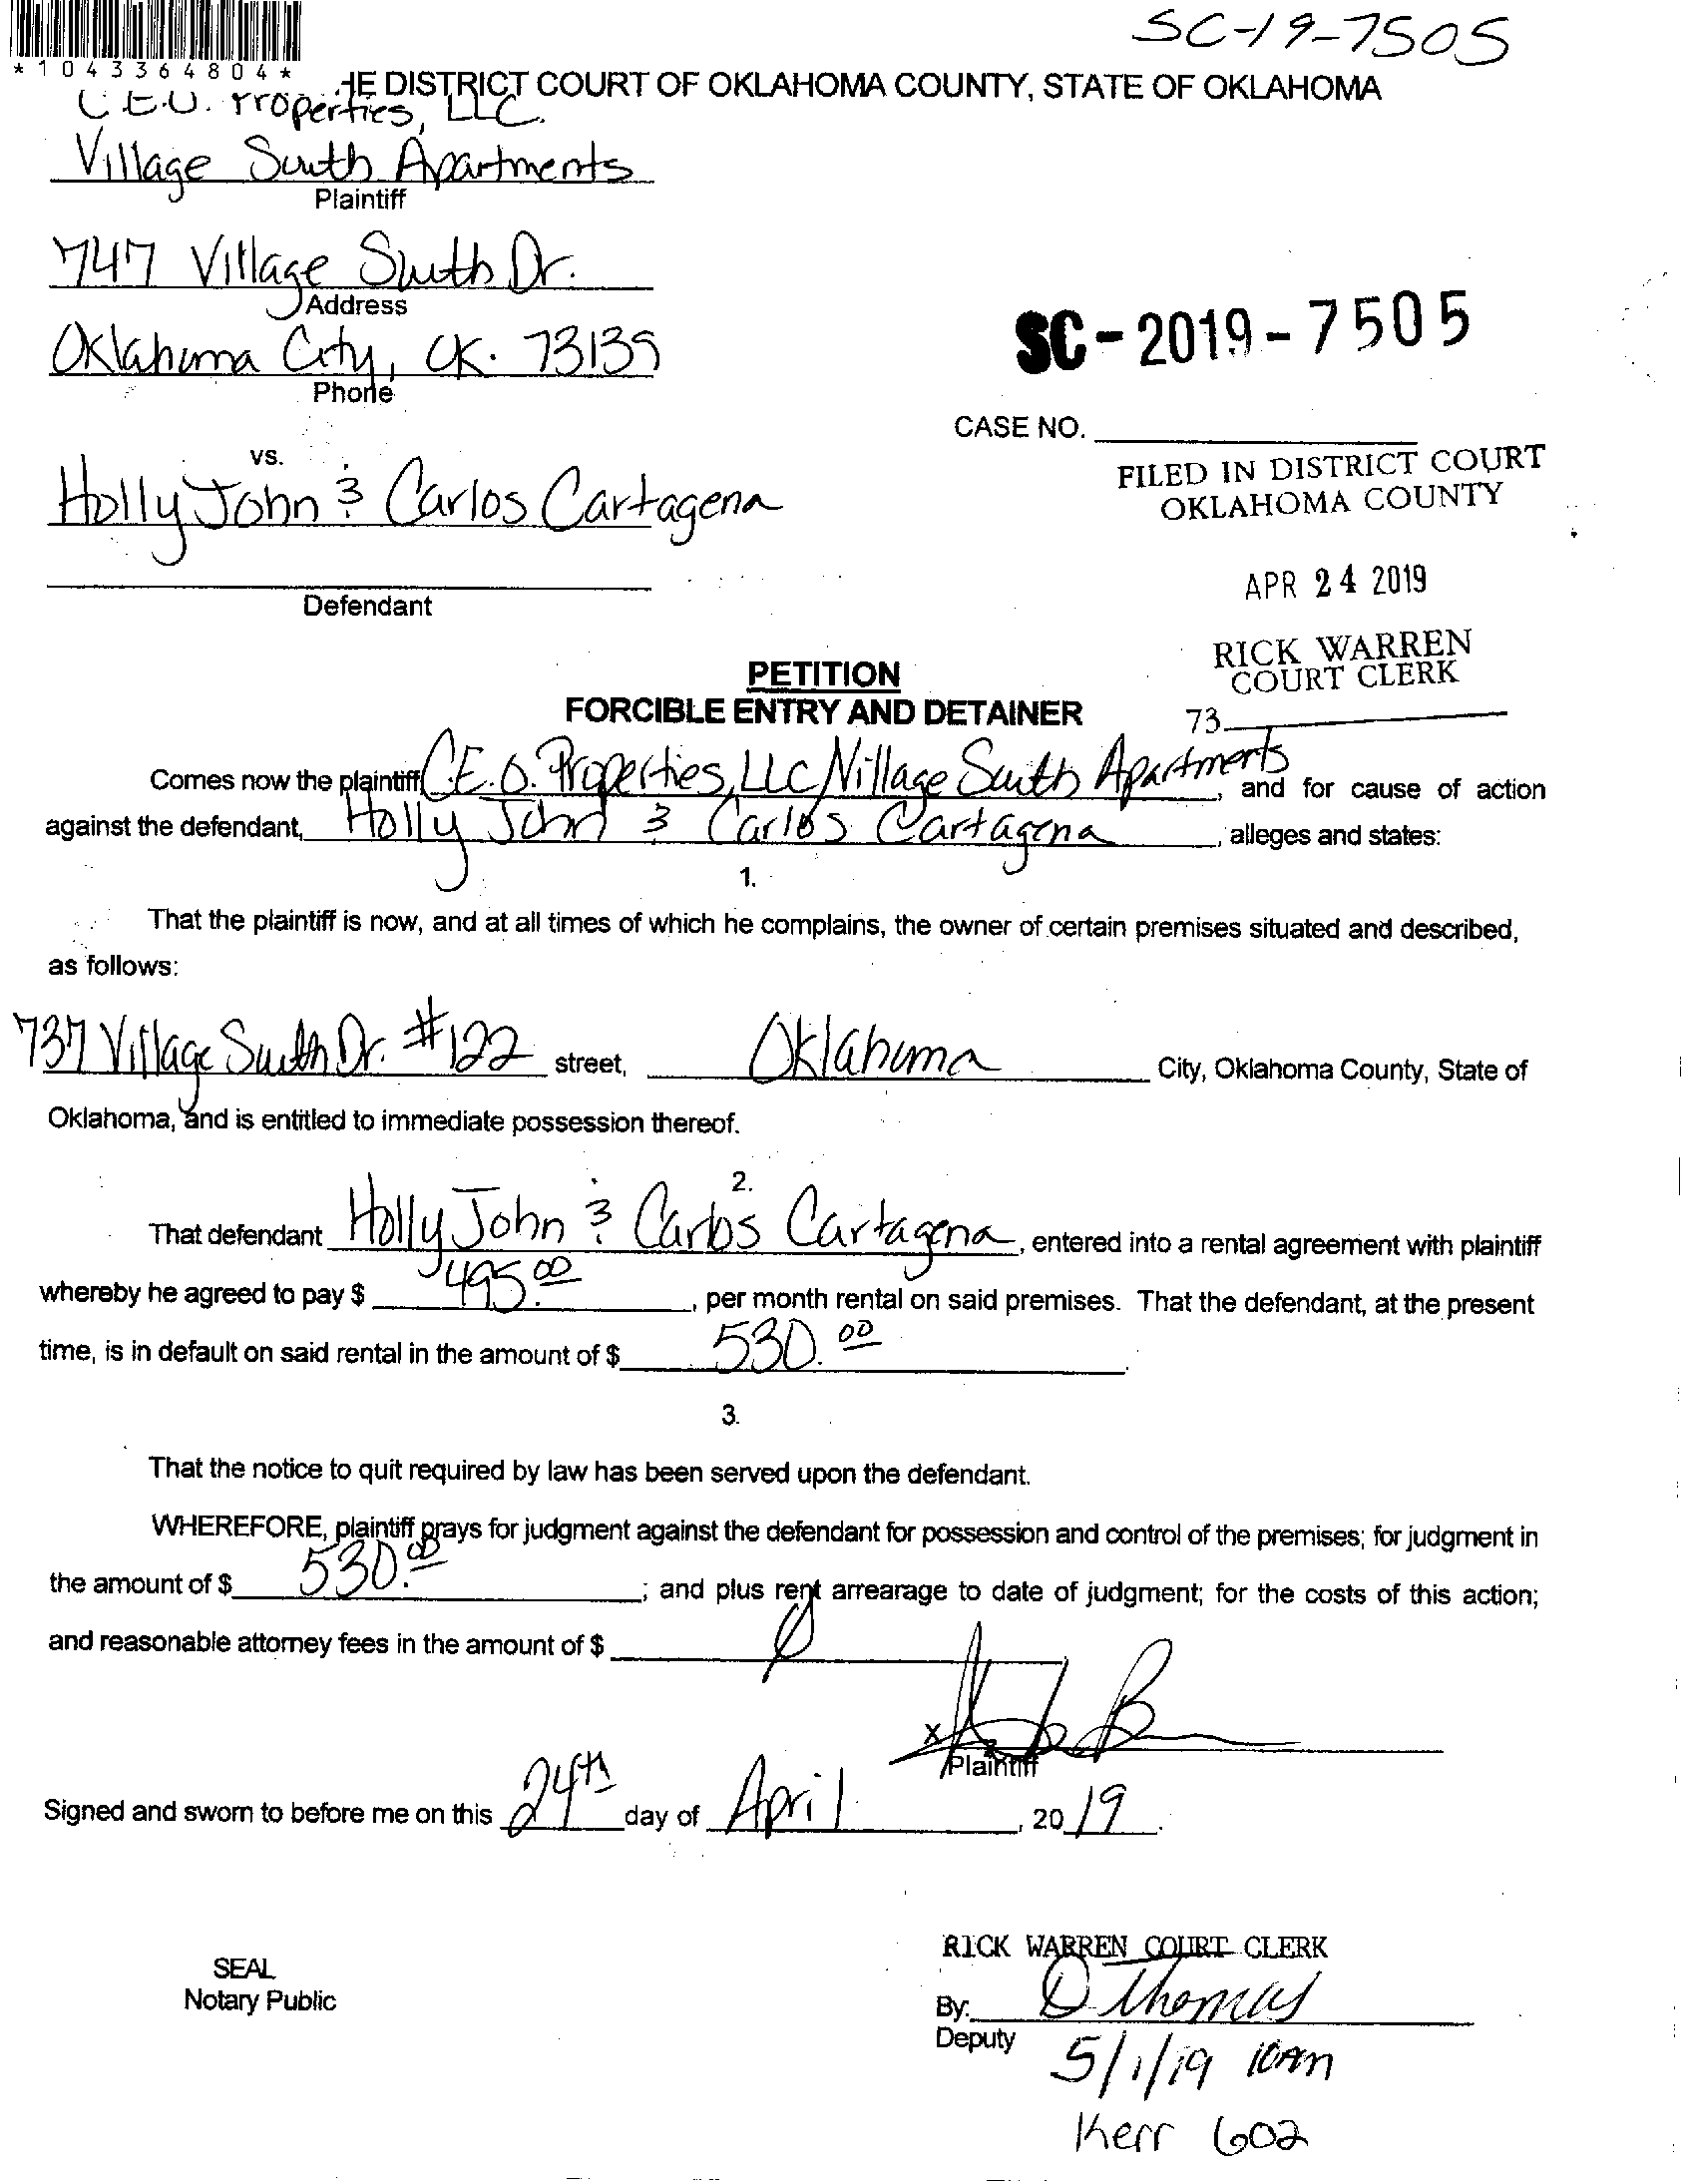 SC-19-7505
*1043364804*
HE DISTRICT COURT OF OKLAHOMA COUNTY, STATE OF OKLAHOMA
Properties, LLC.
Village South Apartments
Plaintiff
747 Village South Dr.
Address
Oklahoma City, OK. 73139
Phone
SC-2019-7505
CASE NO.
vs.
FILED IN DISTRICT COURT
OKLAHOMA COUNTY
Holly John & Carlos Cartagena
APR 24 2019
Defendant
RICK WARREN
COURT CLERK
73
PETITION
FORCIBLE ENTRY AND DETAINER
Comes now the plaintiff, C.E.O. Properties, LLC/Village South Apartments, and for cause of action
against the defendant, Holly John & Carlos Cartagena, alleges and states:
1.
That the plaintiff is now, and at all times of which he complains, the owner of certain premises situated and described,
as follows:
737 Village South Dr. #122 street, Oklahoma City, Oklahoma County, State of
Oklahoma, and is entitled to immediate possession thereof.
2.
That defendant Holly John & Carlos Cartagena, entered into a rental agreement with plaintiff
whereby he agreed to pay $ 495.00, per month rental on said premises. That the defendant, at the present
time, is in default on said rental in the amount of $ 530.00.
3.
That the notice to quit required by law has been served upon the defendant.
WHEREFORE, plaintiff prays for judgment against the defendant for possession and control of the premises; for judgment in
the amount of $ 530.00; and plus rent arrearage to date of judgment; for the costs of this action;
and reasonable attorney fees in the amount of $ Ø
X
Plaintiff
Signed and sworn to before me on this 24th day of April, 2019.
RICK WARREN COURT CLERK
SEAL
Notary Public
By: D Thomas
Deputy
5/1/19 10AM
Kerr 602